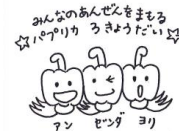 みんなのあんぜんをまもる
☆パプリカ ろきょうだい☆
アン ゼンダ ヨリ